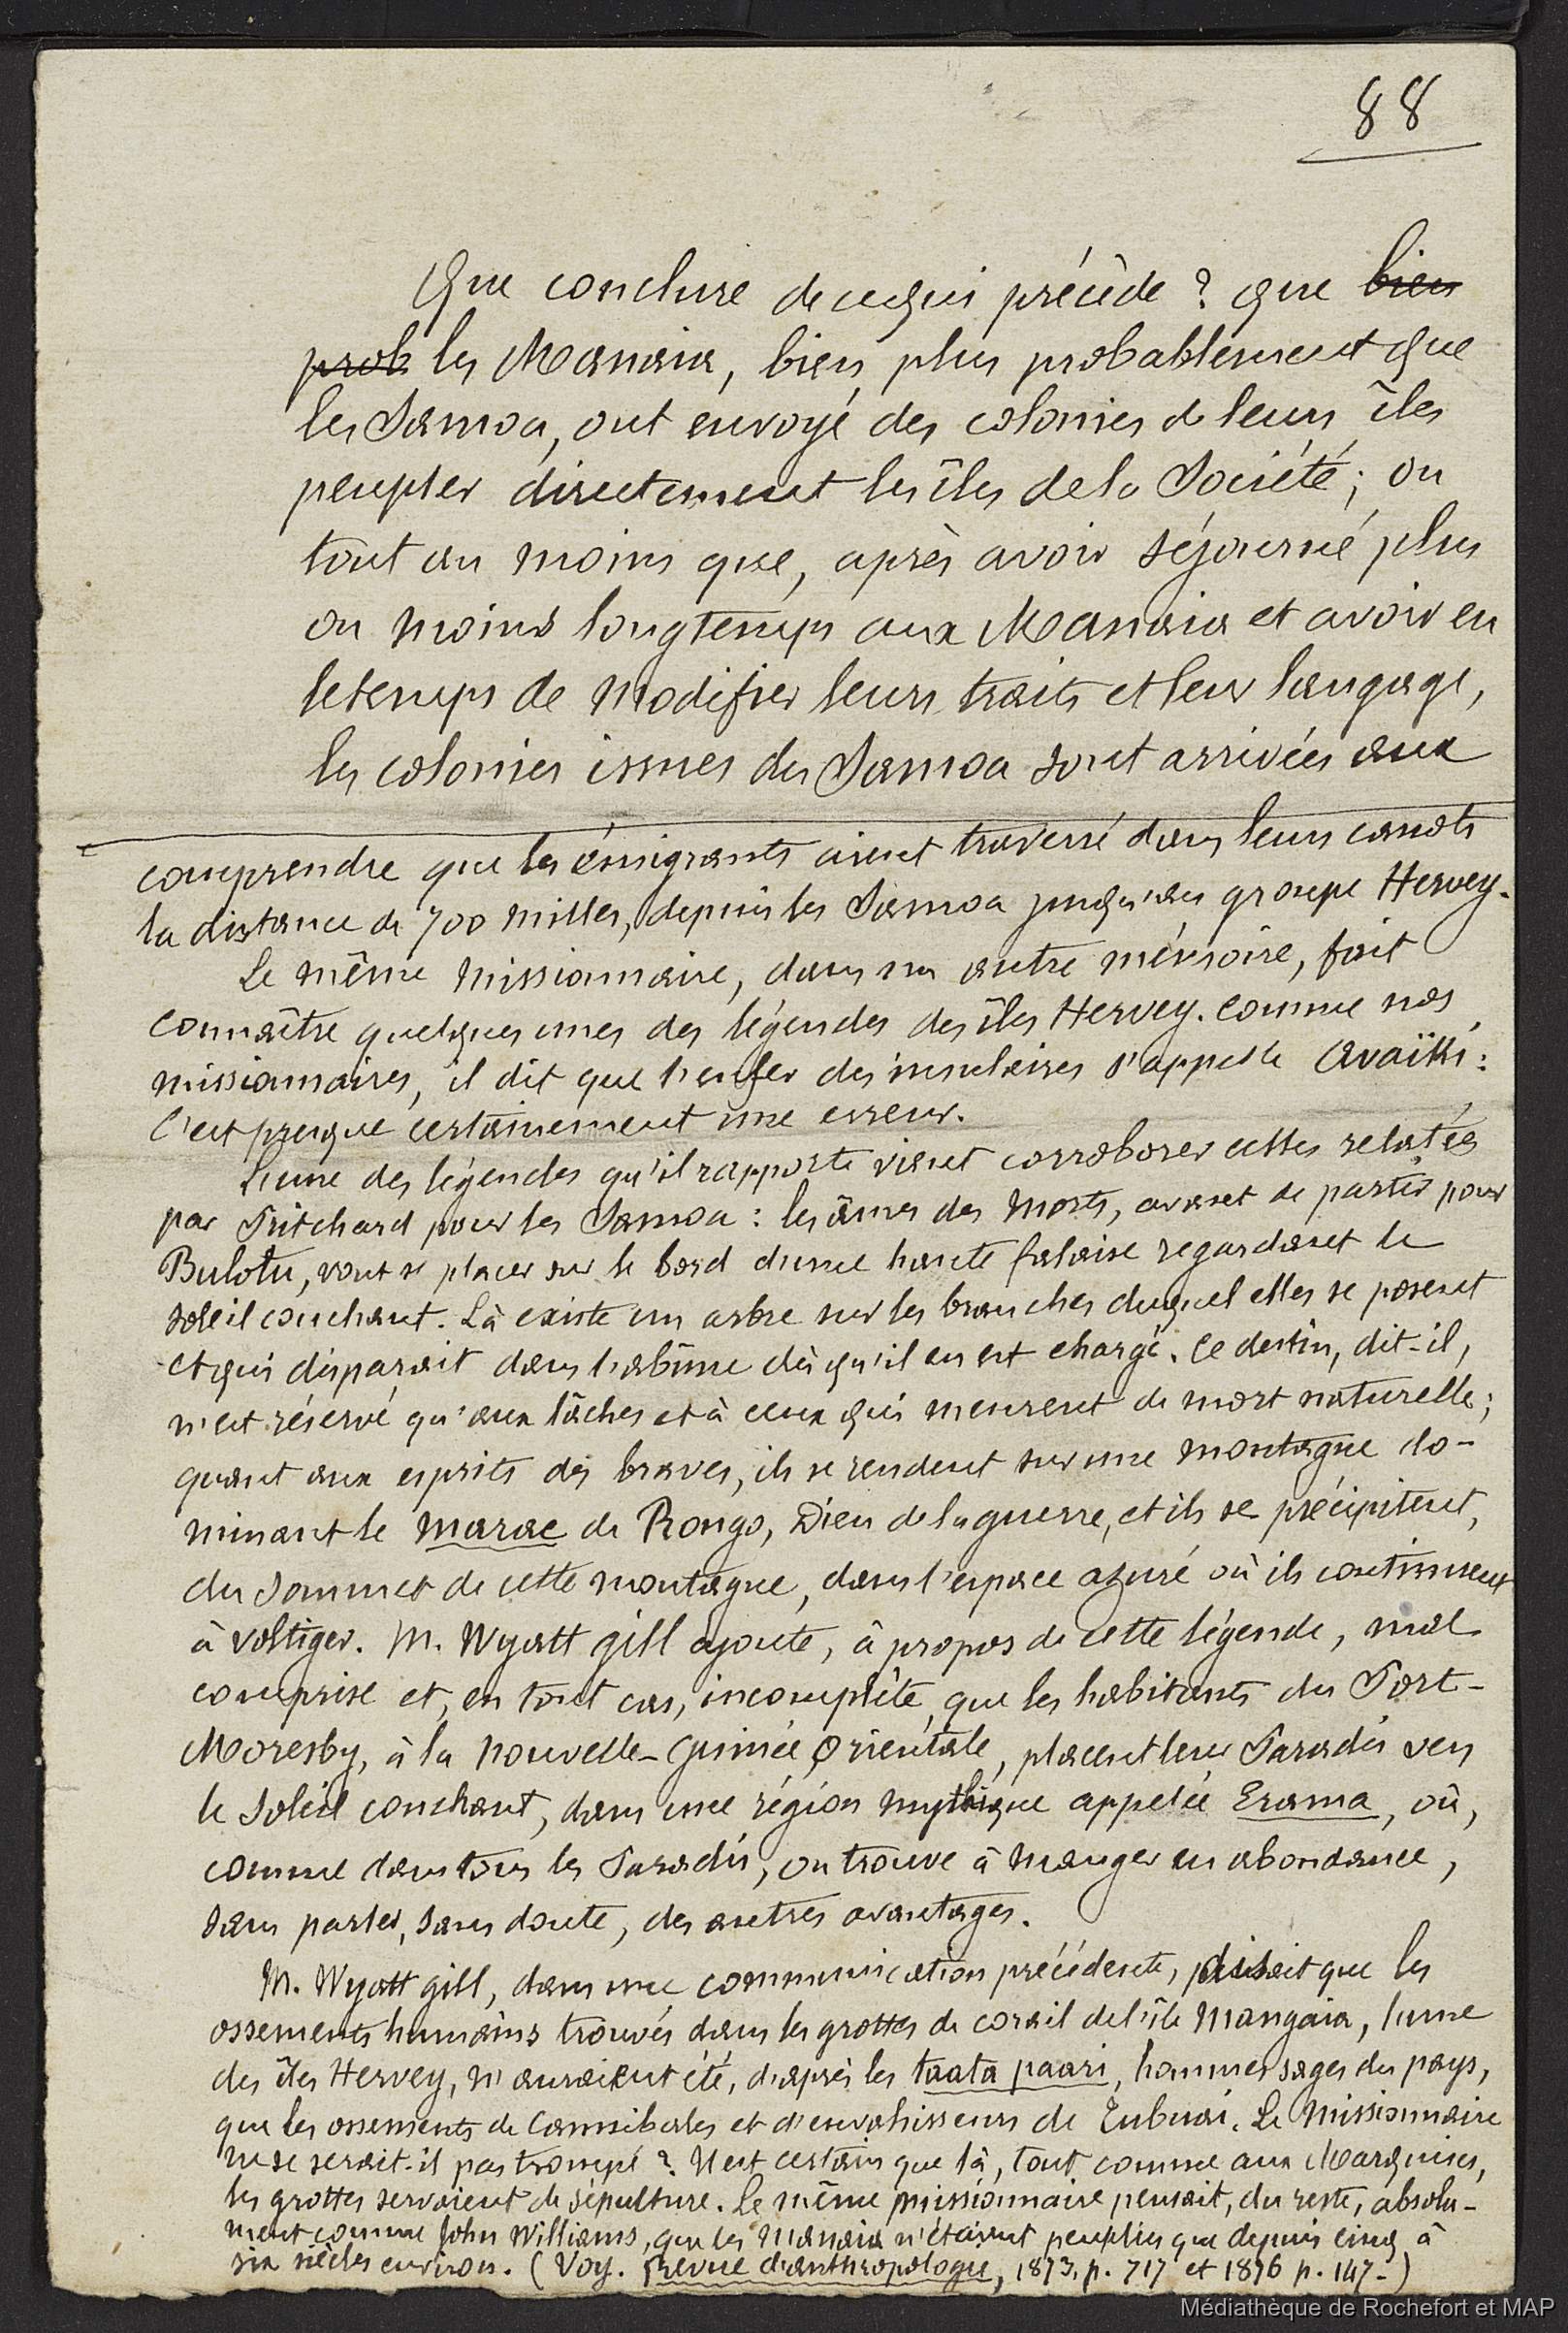 88
Que conclure de ce qui précède ? que bien
prob les Manaia, bien plus probablement que
les Samoa, ont envoyé des colonies de leurs îles
peupler directement les îles de la Société ; ou
tout au moins que, après avoir séjourné plus
ou moins longtemps aux Manaia et avoir eu
le temps de modifier leurs traits et leur langage,
les colonies issues des Samoa sont arrivées aux
comprendre que les émigrants aient traversé dans leurs canots
la distance de 700 milles, depuis les Samoa jusqu'au groupe Hervey.
Le même missionnaire, dans un autre mémoire, fait
connaître quelques unes des légendes des îles Hervey. Comme nos
missionnaires, il dit que l'enfer des insulaires s'appelle Avaïki :
C'est presque certainement une erreur.
L'une des légendes qu'il rapporte vient corroborer celles relatées
par Pritchard pour les Samoa : les âmes des morts, avant de partir pour
Bulotu, vont se placer sur le bord d'une haute falaise regardant le
soleil couchant. Là existe un arbre sur les branches duquel elles se posent
et qui disparait dans l'abîme dès qu'il en est chargé. Ce destin, dit-il,
n'est réservé qu'aux lâches et à ceux qui meurent de mort naturelle ;
quant aux esprits des braves, ils se rendent sur une montagne do-
minant le marae de Rongo, Dieu de la guerre, et ils se précipitent,
du sommet de cette montagne, dans l'espace azuré où ils continuent
à voltiger. M. Wyatt gill ajoute, à propos de cette légende, mal
comprise et, en tout cas, incomplète, que les habitants du Port-
Moresby, à la Nouvelle-Guinée Orientale, placent leur Paradis vers
le Soleil couchant, dans une région mythique appelée Erama, où,
comme dans tous les Paradis, on trouve à manger en abondance,
sans parler, sans doute, des autres avantages.
M. Wyatt gill, dans une communication précédente, disait que les
ossements humains trouvés dans les grottes de corail de l'île Mangaia, l'une
des îles Hervey, n'auraient été, d'après les taata paari, hommes sages du pays,
que les ossements de Cannibales et d'envahisseurs de Tubuai. Le Missionnaire
ne se serait-il pas trompé ? Il est certain que là, tout comme aux Marquises,
les grottes servaient de sépulture. Le même missionnaire pensait, du reste, absolu-
ment comme John Williams, que les Manaia n'étaient peuplées que depuis cinq à
six siècles environ. (Voy. Revue d'anthropologie, 1873, p. 717 et 1876 p. 147.)
Médiathèque de Rochefort et MAP